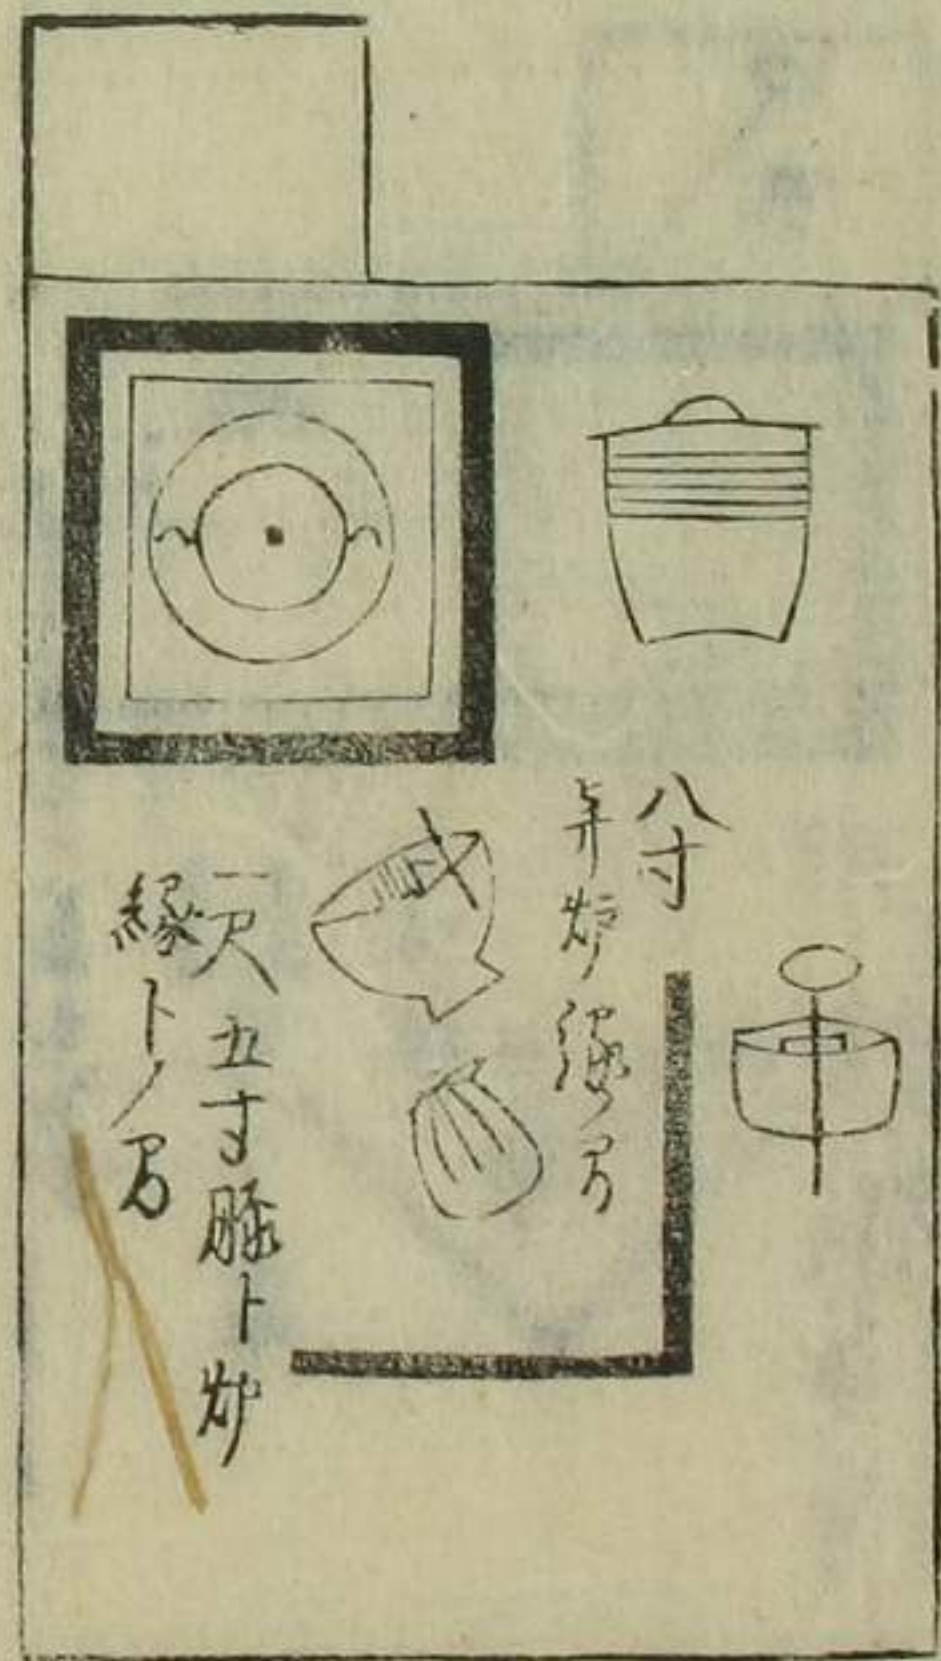 八寸
炉縁ノ間
一尺五寸膝ト炉
縁トノ間